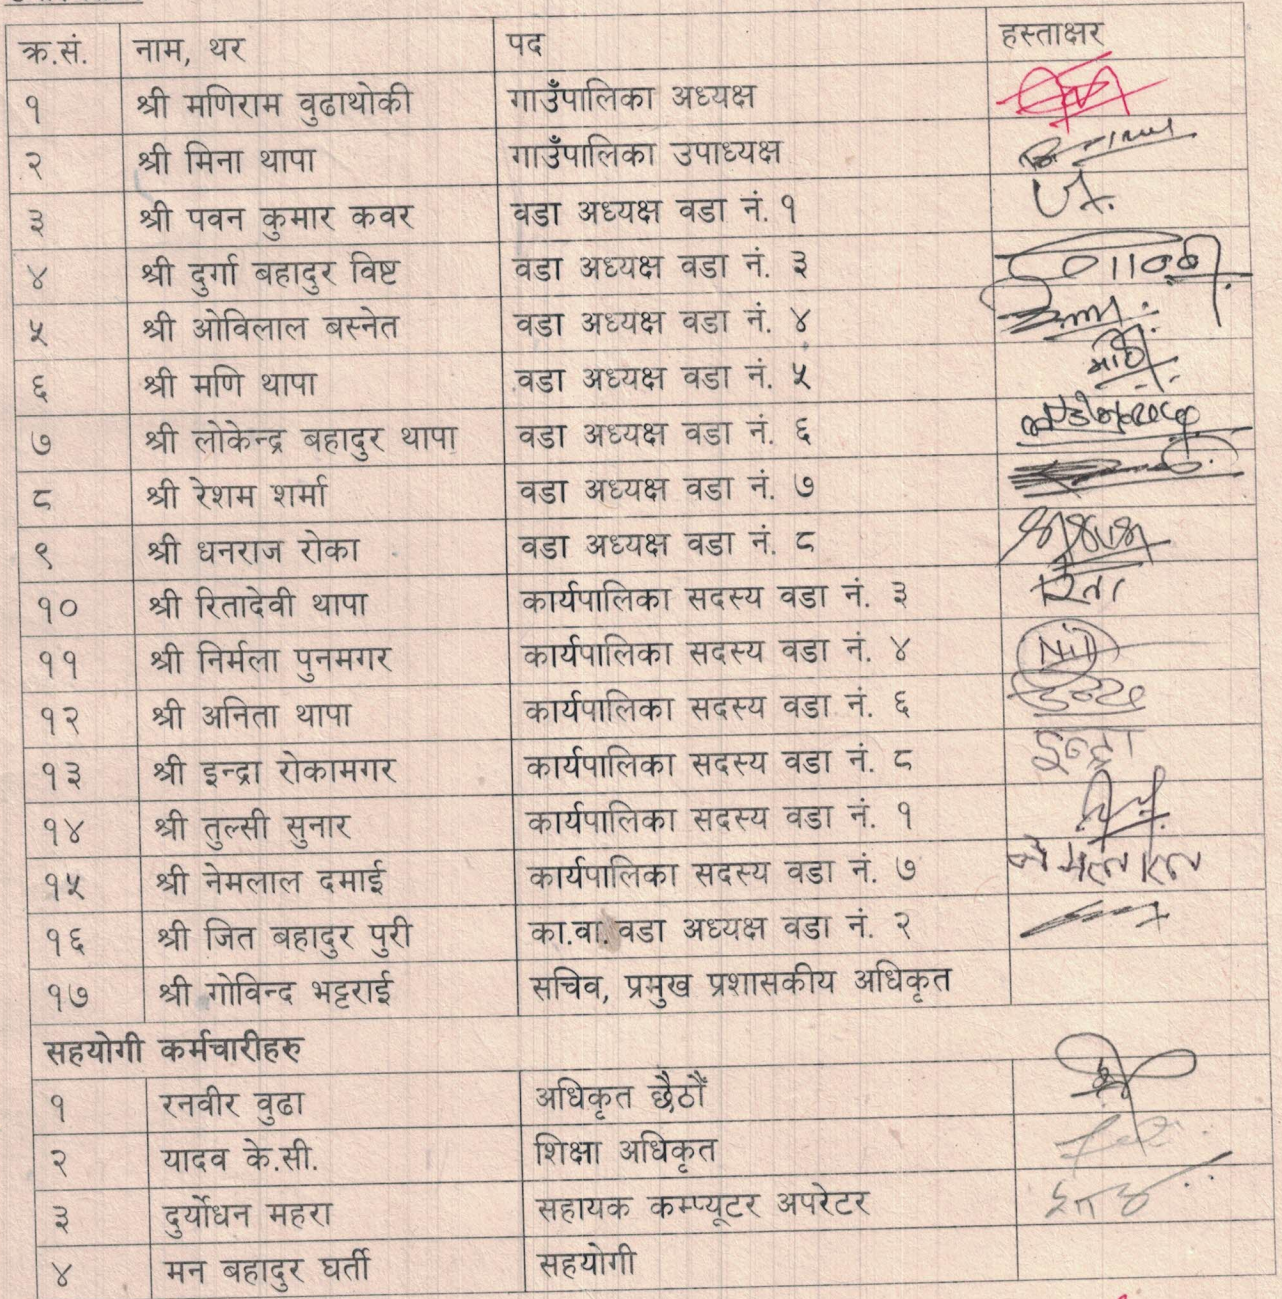 क्र.सं. नाम, थर पद हस्ताक्षर
१ श्री मणिराम वुढाथोकी गाउँपालिका अध्यक्ष
२ श्री मिना थापा गाउँपालिका उपाध्यक्ष
३ श्री पवन कुमार कवर वडा अध्यक्ष वडा नं. १
४ श्री दुर्गा बहादुर विष्ट वडा अध्यक्ष वडा नं. ३
५ श्री ओविलाल बस्नेत वडा अध्यक्ष वडा नं. ४
६ श्री मणि थापा वडा अध्यक्ष वडा नं. ५
७ श्री लोकेन्द्र बहादुर थापा वडा अध्यक्ष वडा नं. ६
८ श्री रेशम शर्मा वडा अध्यक्ष वडा नं. ७
९ श्री धनराज रोका वडा अध्यक्ष वडा नं. ८
१० श्री रितादेवी थापा कार्यपालिका सदस्य वडा नं. ३ रिता
११ श्री निर्मला पुनमगर कार्यपालिका सदस्य वडा नं. ४
१२ श्री अनिता थापा कार्यपालिका सदस्य वडा नं. ६
१३ श्री इन्द्रा रोकामगर कार्यपालिका सदस्य वडा नं. ८ इन्द्रा
१४ श्री तुल्सी सुनार कार्यपालिका सदस्य वडा नं. १
१५ श्री नेमलाल दमाई कार्यपालिका सदस्य वडा नं. ७
१६ श्री जित बहादुर पुरी का.वा. वडा अध्यक्ष वडा नं. २
१७ श्री गोविन्द भट्टराई सचिव, प्रमुख प्रशासकीय अधिकृत
सहयोगी कर्मचारीहरु
१ रनवीर वुढा अधिकृत छैठौं
२ यादव के.सी. शिक्षा अधिकृत
३ दुर्योधन महरा सहायक कम्प्यूटर अपरेटर
४ मन बहादुर घर्ती सहयोगी